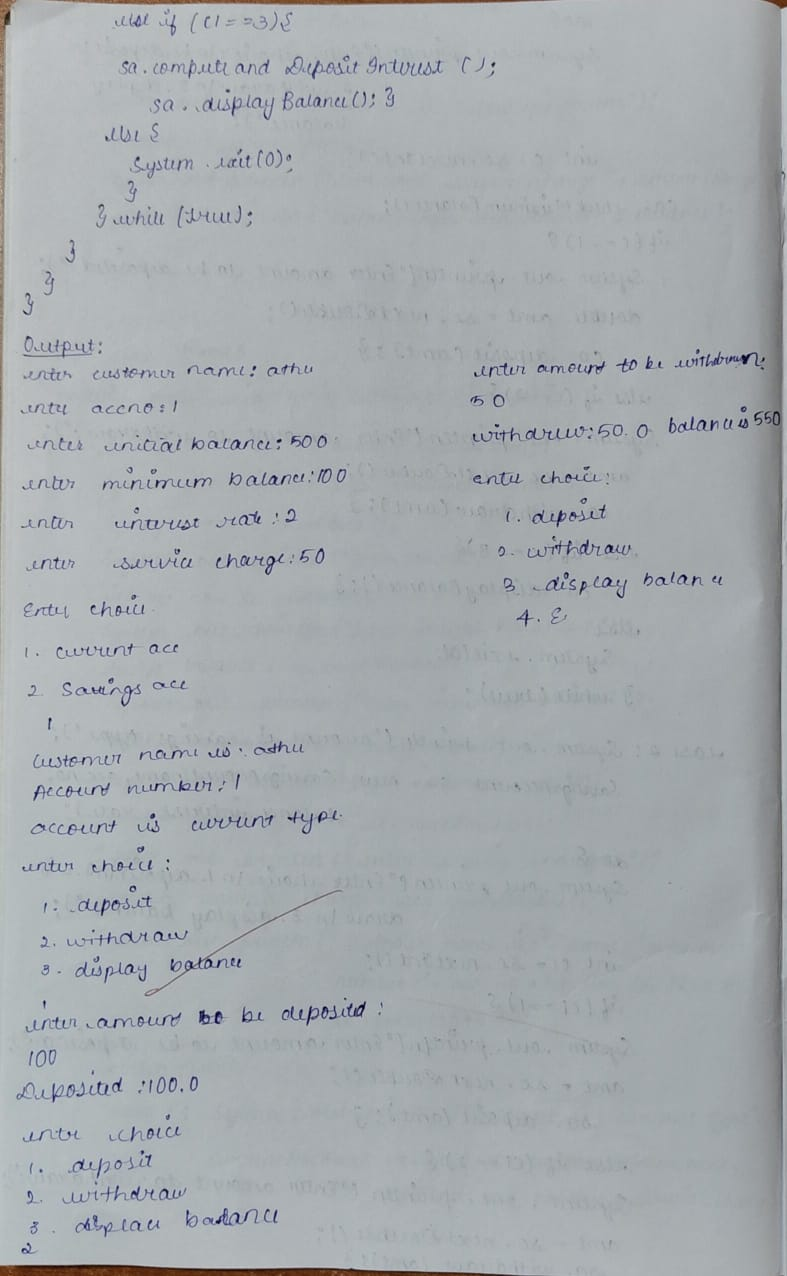 else if (c1 == 3){
sa.compute and Deposit Interest ();
sa.displayBalance(); }
else {
System.exit(0);
}
} while (true);
}
}
}
Output:
enter customer name: athu
enter accno: 1
enter initial balance: 500
enter minimum balance: 100
enter interest rate: 2
enter service charge: 50
Enter choice
1. current acc
2. Savings acc
1
Customer name is: athu
Account number: 1
account is current type
enter choice:
1. deposit
2. withdraw
3. display balance
1
enter amount to be deposited:
100
Deposited: 100.0
enter choice
1. deposit
2. withdraw
3. display balance
2
enter amount to be withdrawn:
50
withdrew: 50.0 balance is 550
enter choice:
1. deposit
2. withdraw
3. display balance
4. E